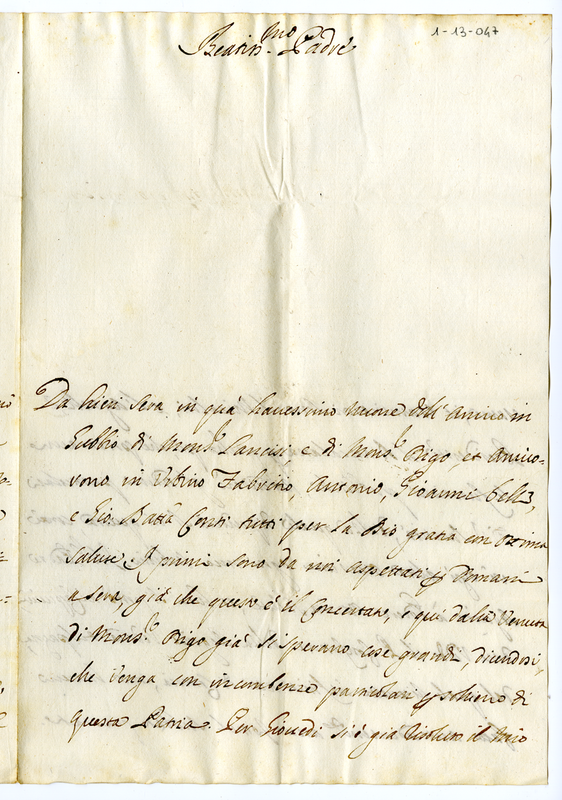 1-13-047
Beatis.mo Padre
Da hieri sera in quà havessimo nuove dell'arrivo in
Gubbio di Mons.r Lancisi, e di Mons.r Rigo, et arrivo-
rono in Urbino Fabritio, Antonio, Gioanni
e Gio: Batt.a Conti tutti per la Dio gratia con ottima
salute. I primi sono da noi aspettati p Domani
a sera, già che questo è il Concertato, e qui dalla Venuta
di Mons.r Rigo già si sperano cose grandi, dicendosi,
che venga con incombenze particolari p sollievo di
questa Patria. Per Giovedì si è già risoluto il mio